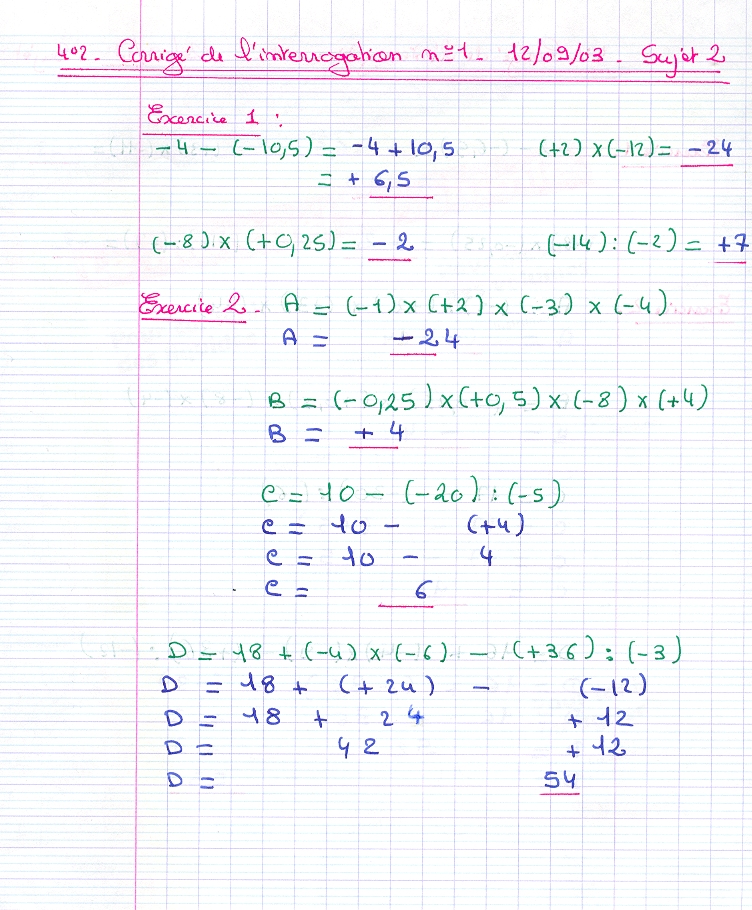 402. Corrigé de l'interrogation n°1. 12/09/03. Sujet 2
Exercice 1 :
-4 - (-10,5) = -4 + 10,5 (+2) x (-12) = -24
= + 6,5
(-8) x (+0,25) = -2 (-14) : (-2) = +7
Exercice 2. A = (-1) x (+2) x (-3) x (-4)
A = -24
B = (-0,25) x (+0,5) x (-8) x (+4)
B = + 4
C = 10 - (-20) : (-5)
C = 10 - (+4)
C = 10 - 4
C = 6
D = 18 + (-4) x (-6) - (+36) : (-3)
D = 18 + (+24) - (-12)
D = 18 + 24 + 12
D = 42 + 12
D = 54